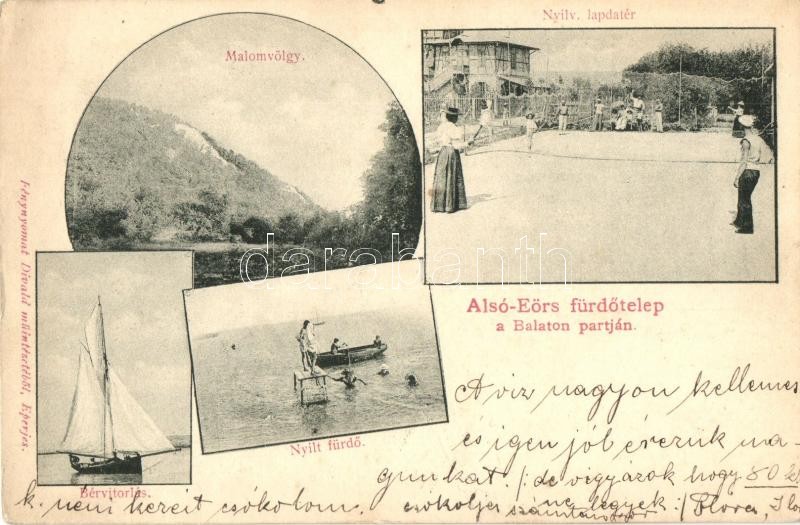 Nyilv. lapdatér
Malomvölgy.
darabanth
Alsó-Eörs fürdőtelep
a Balaton partján.
Nyilt fürdő.
Bérvitorlás.
Fénynyomat Divald műintézetéből, Eperjes.
A viz nagyon kellemes
és igen jól érezzük ma-
gunkat. /: de vigyázok hogy 80
csókoljes ne legyek :/ Flóra,
k. nem kezeit csókolom.